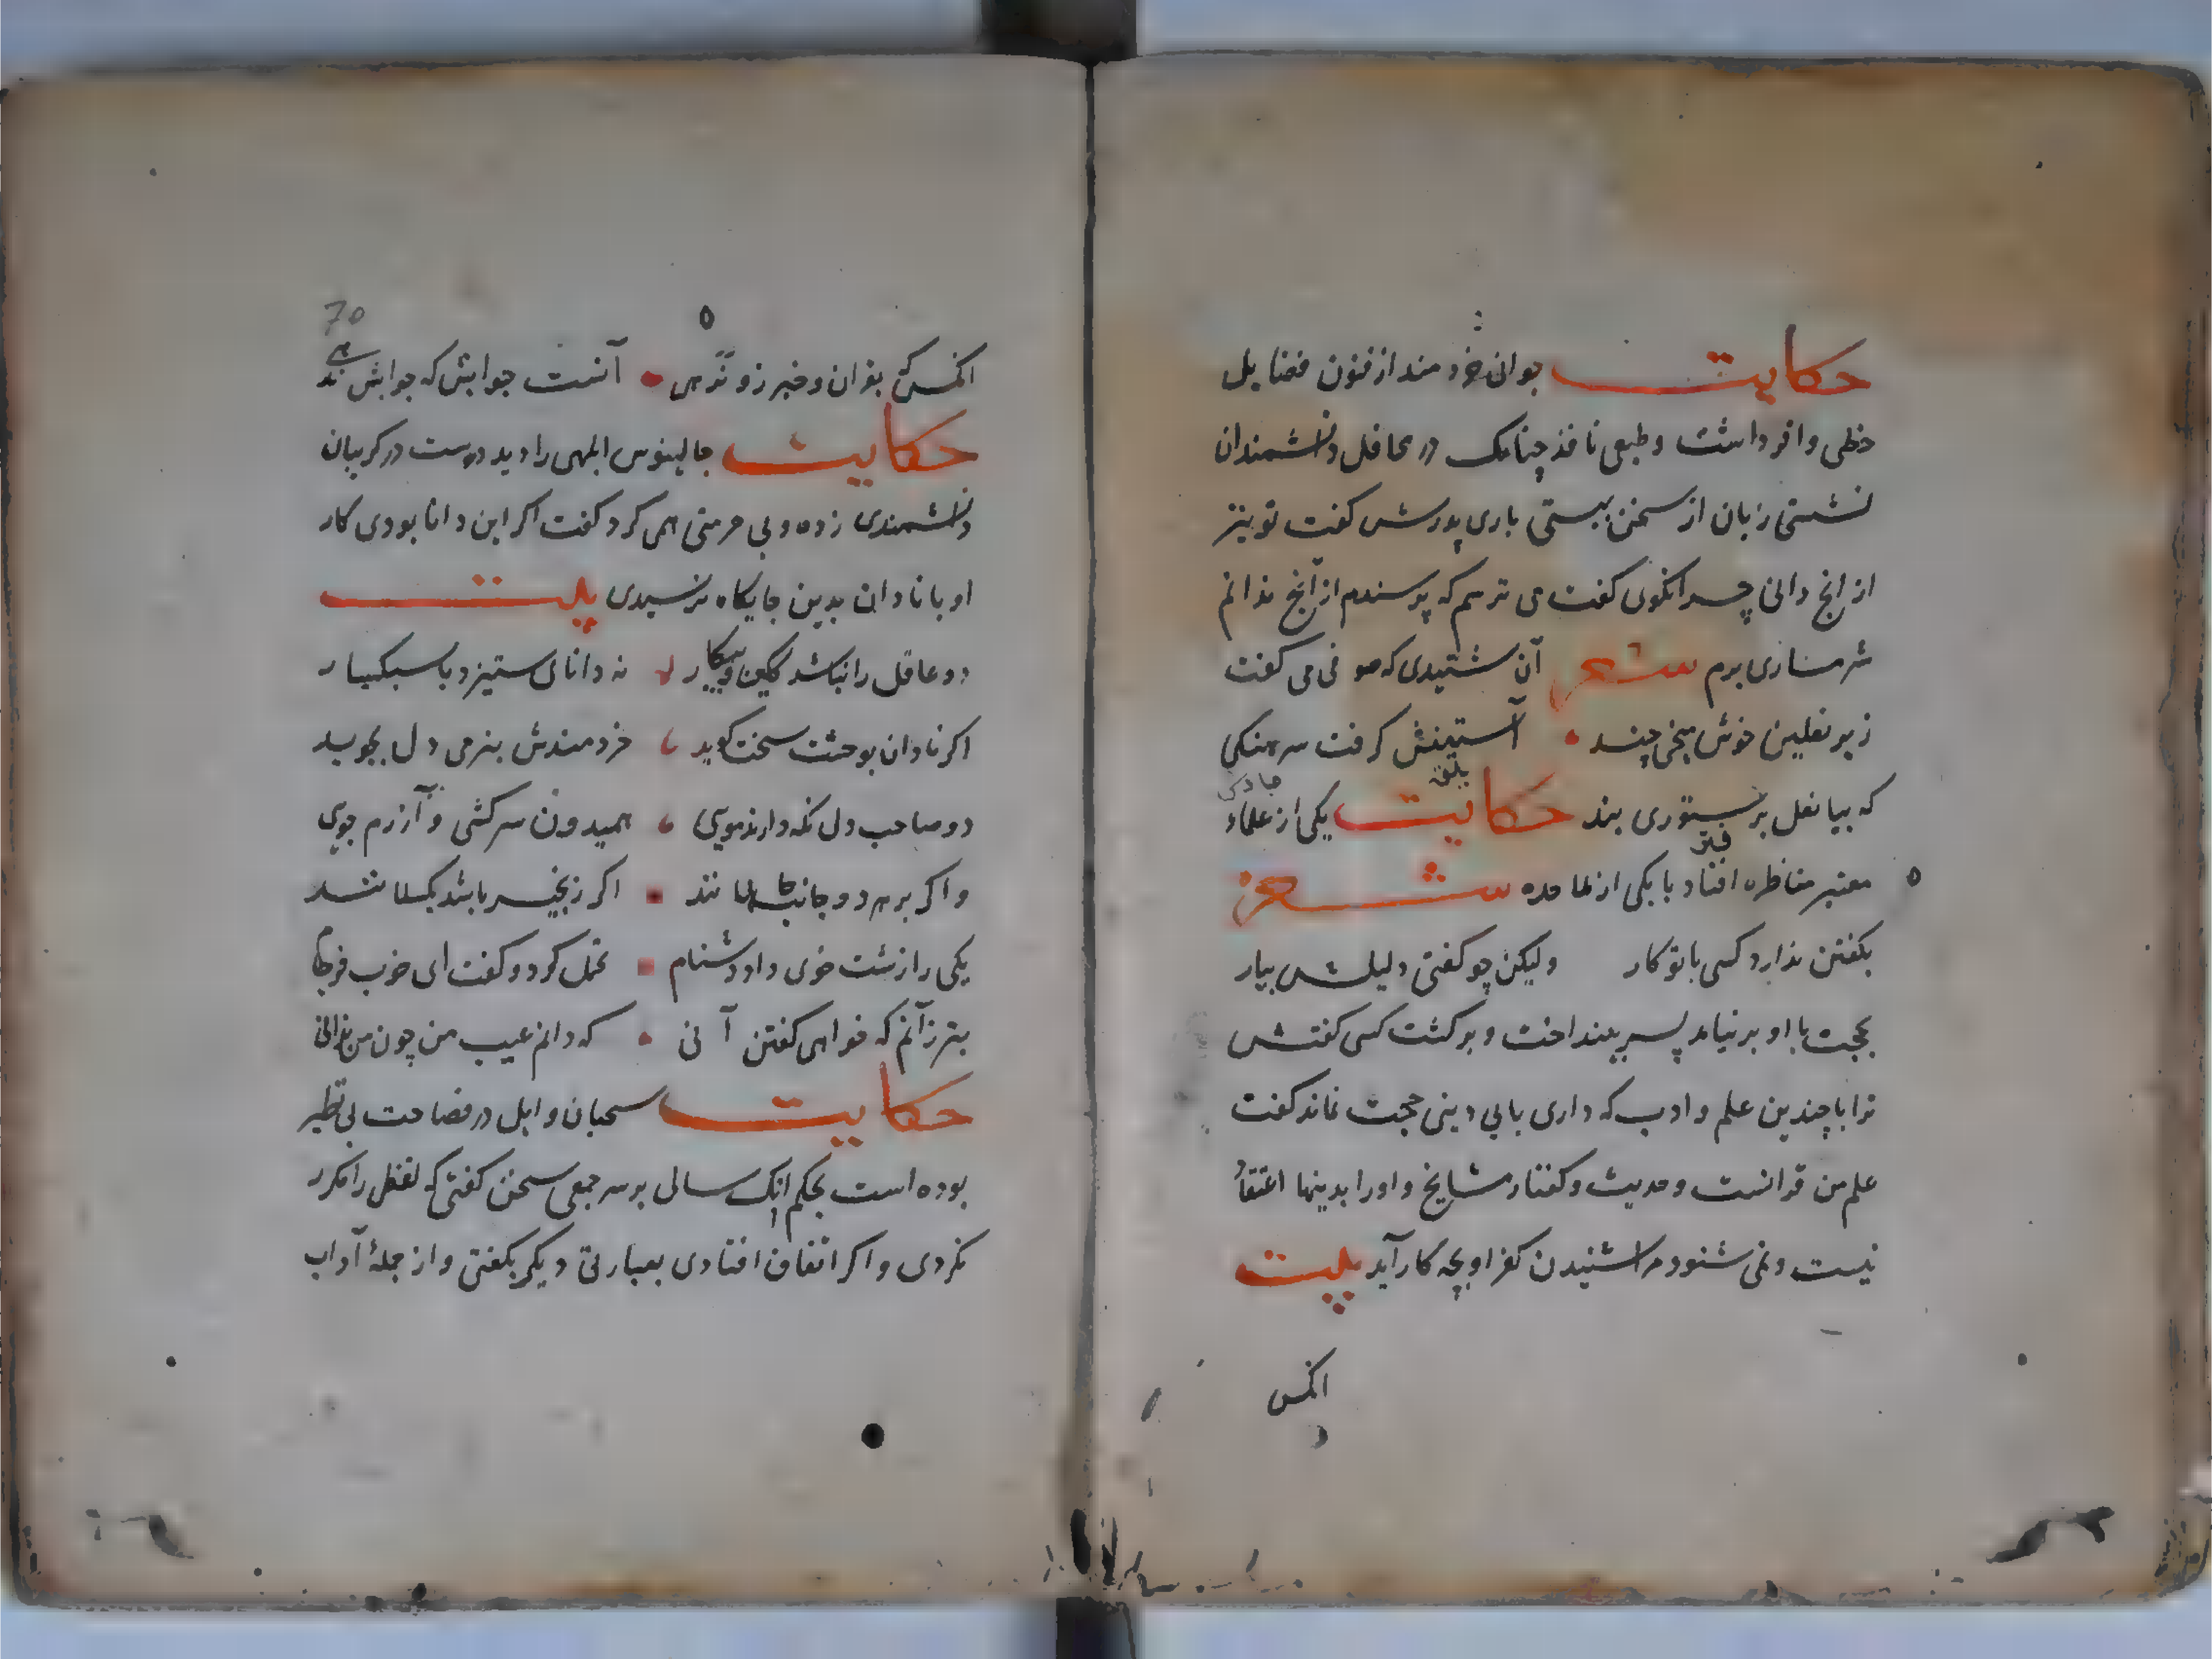 حکایت جوانی خردمند از فنون فضایل
حظی وافر داشت و طبعی نافذ چنانک در محافل دانشمندان
نشستی زبان از سخن ببستی باری پدرش کفت تو نیز
از انچ دانی چرا نکوی کفت می ترسم که پرسندم از آنچ ندانم
شرمساری برم شعر آن شنیدی که صوفی می کفت
زیر نعلین خوش میخی چند آستینش کرفت سرهنکی
که بیا نعل بر ستوری بند حکایت یکی از علماء
معتبر مناظره افتاد با یکی از ملاحده شعر
بکفتن ندارد کسی با تو کار ولیکن چو کفتی دلیلش بیار
بحجت با او بر نیامد پسر بینداخت و برکشت کسی کفتش
ترا با چندین علم و ادب که داری با بی دینی حجت نماند کفت
علم من قرانست و حدیث و کفتار مشایخ و او را بدینها اعتقاد
نیست و نمی شنود مرا شنیدن کفر او بچه کار آید بیت
انکس
70
انکس که بقران و خبر زو نرهی آنست جوابش که جوابش ندهی
حکایت جالینوس ابلهی را دید دست در کریبان
دانشمندی زده و بی حرمتی همی کرد کفت اکر این دانا بودی کار
او با نادان بدین جایکاه نرسیدی بیت
دو عاقل را نباشد کین و پیکار نه دانای ستیزد با سبکسار
اکر نادان بوحشت سخت کوید خردمندش بنرمی دل بجوید
دو صاحب دل نکه دارند مویی همیدون سرکشی و آزرم جوی
و اکر بر هر دو جانب جاهلانند اکر زنجیر باشد بکسلانند
یکی را زشت خوی داد دشنام تحمل کرد و کفت ای خوب فرجام
بتر زآنم که خواهی کفتن آنی که دانم عیب من چون من ندانی
حکایت سحبان وایل در فصاحت بی نظیر
بوده است بحکم انک سالی بر سر جمعی سخن کفتی که لفظی را مکرر
نکردی و اکر اتفاق افتادی بعبارتی دیکر بکفتی و از جملهٔ آداب